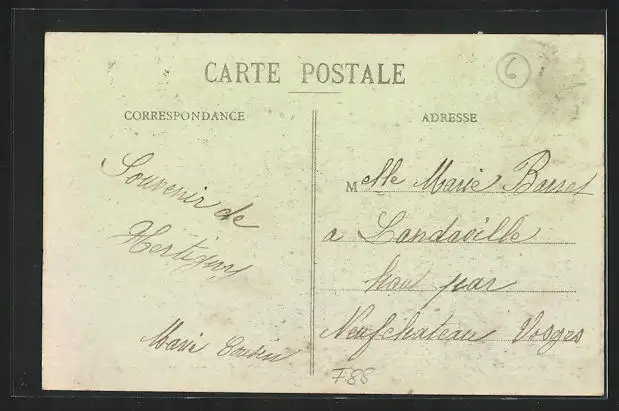 CARTE POSTALE
6
CORRESPONDANCE
ADRESSE
Souvenir de
Hertigny
Marie Cousin
Melle Marie
a Landaville
haut par
Neufchateau Vosges
788